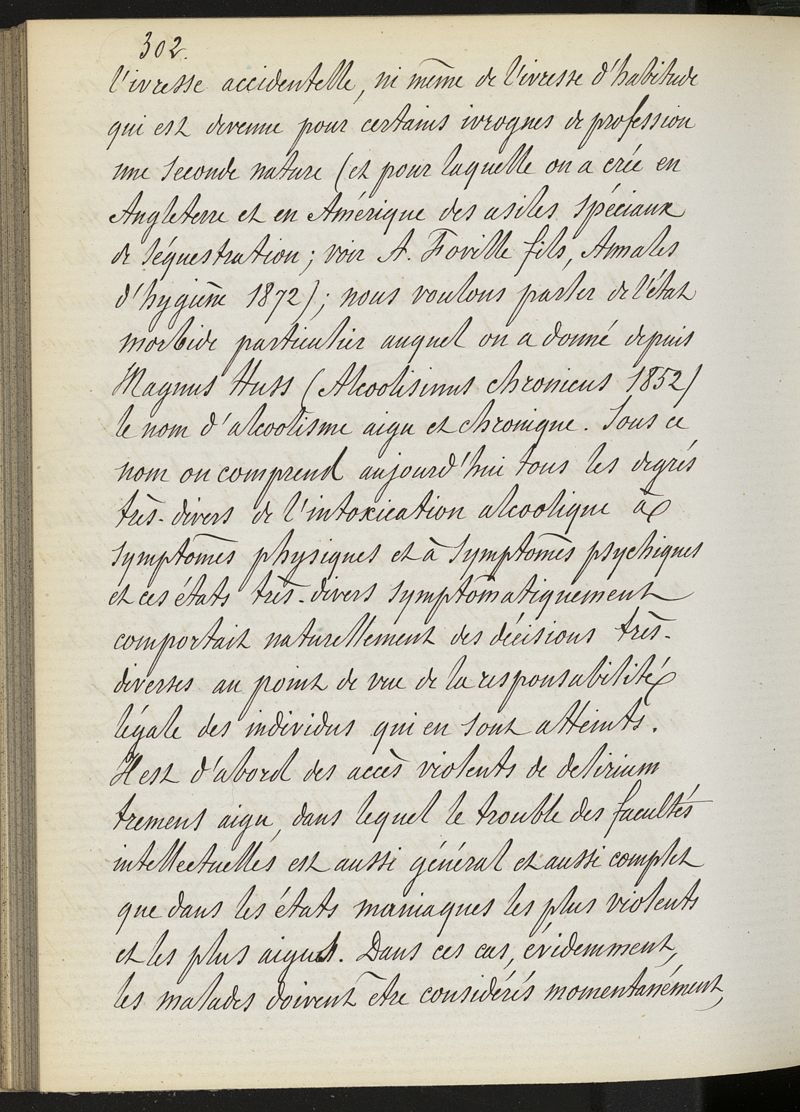 302.
l'ivresse accidentelle, ni même de l'ivresse d'habitude
qui est devenue pour certains ivrognes de profession
une seconde nature (et pour laquelle on a crée en
Angleterre et en Amérique des asiles spéciaux
de séquestration ; voir A. Foville fils, Annales
d'hygiène 1872) ; nous voulons parler de l'état
morbide particulier auquel on a donné depuis
Magnus Huss (Alcoolismus chronicus 1852)
le nom d'alcoolisme aigu et chronique. Sous ce
nom on comprend aujourd'hui tous les degrés
très-divers de l'intoxication alcoolique à
symptômes physiques et à symptômes psychiques
et ces états très-divers symptômatiquement
comportait naturellement des décisions très-
diverses au point de vue de la responsabilité
légale des individus qui en sont atteints.
Il est d'abord des accès violents de delirium
tremens aigu, dans lequel le trouble des facultés
intellectuelles est aussi général et aussi complet
que dans les états maniaques les plus violents
et les plus aigus. Dans ces cas, évidemment,
les malades doivent être considérés momentanément,